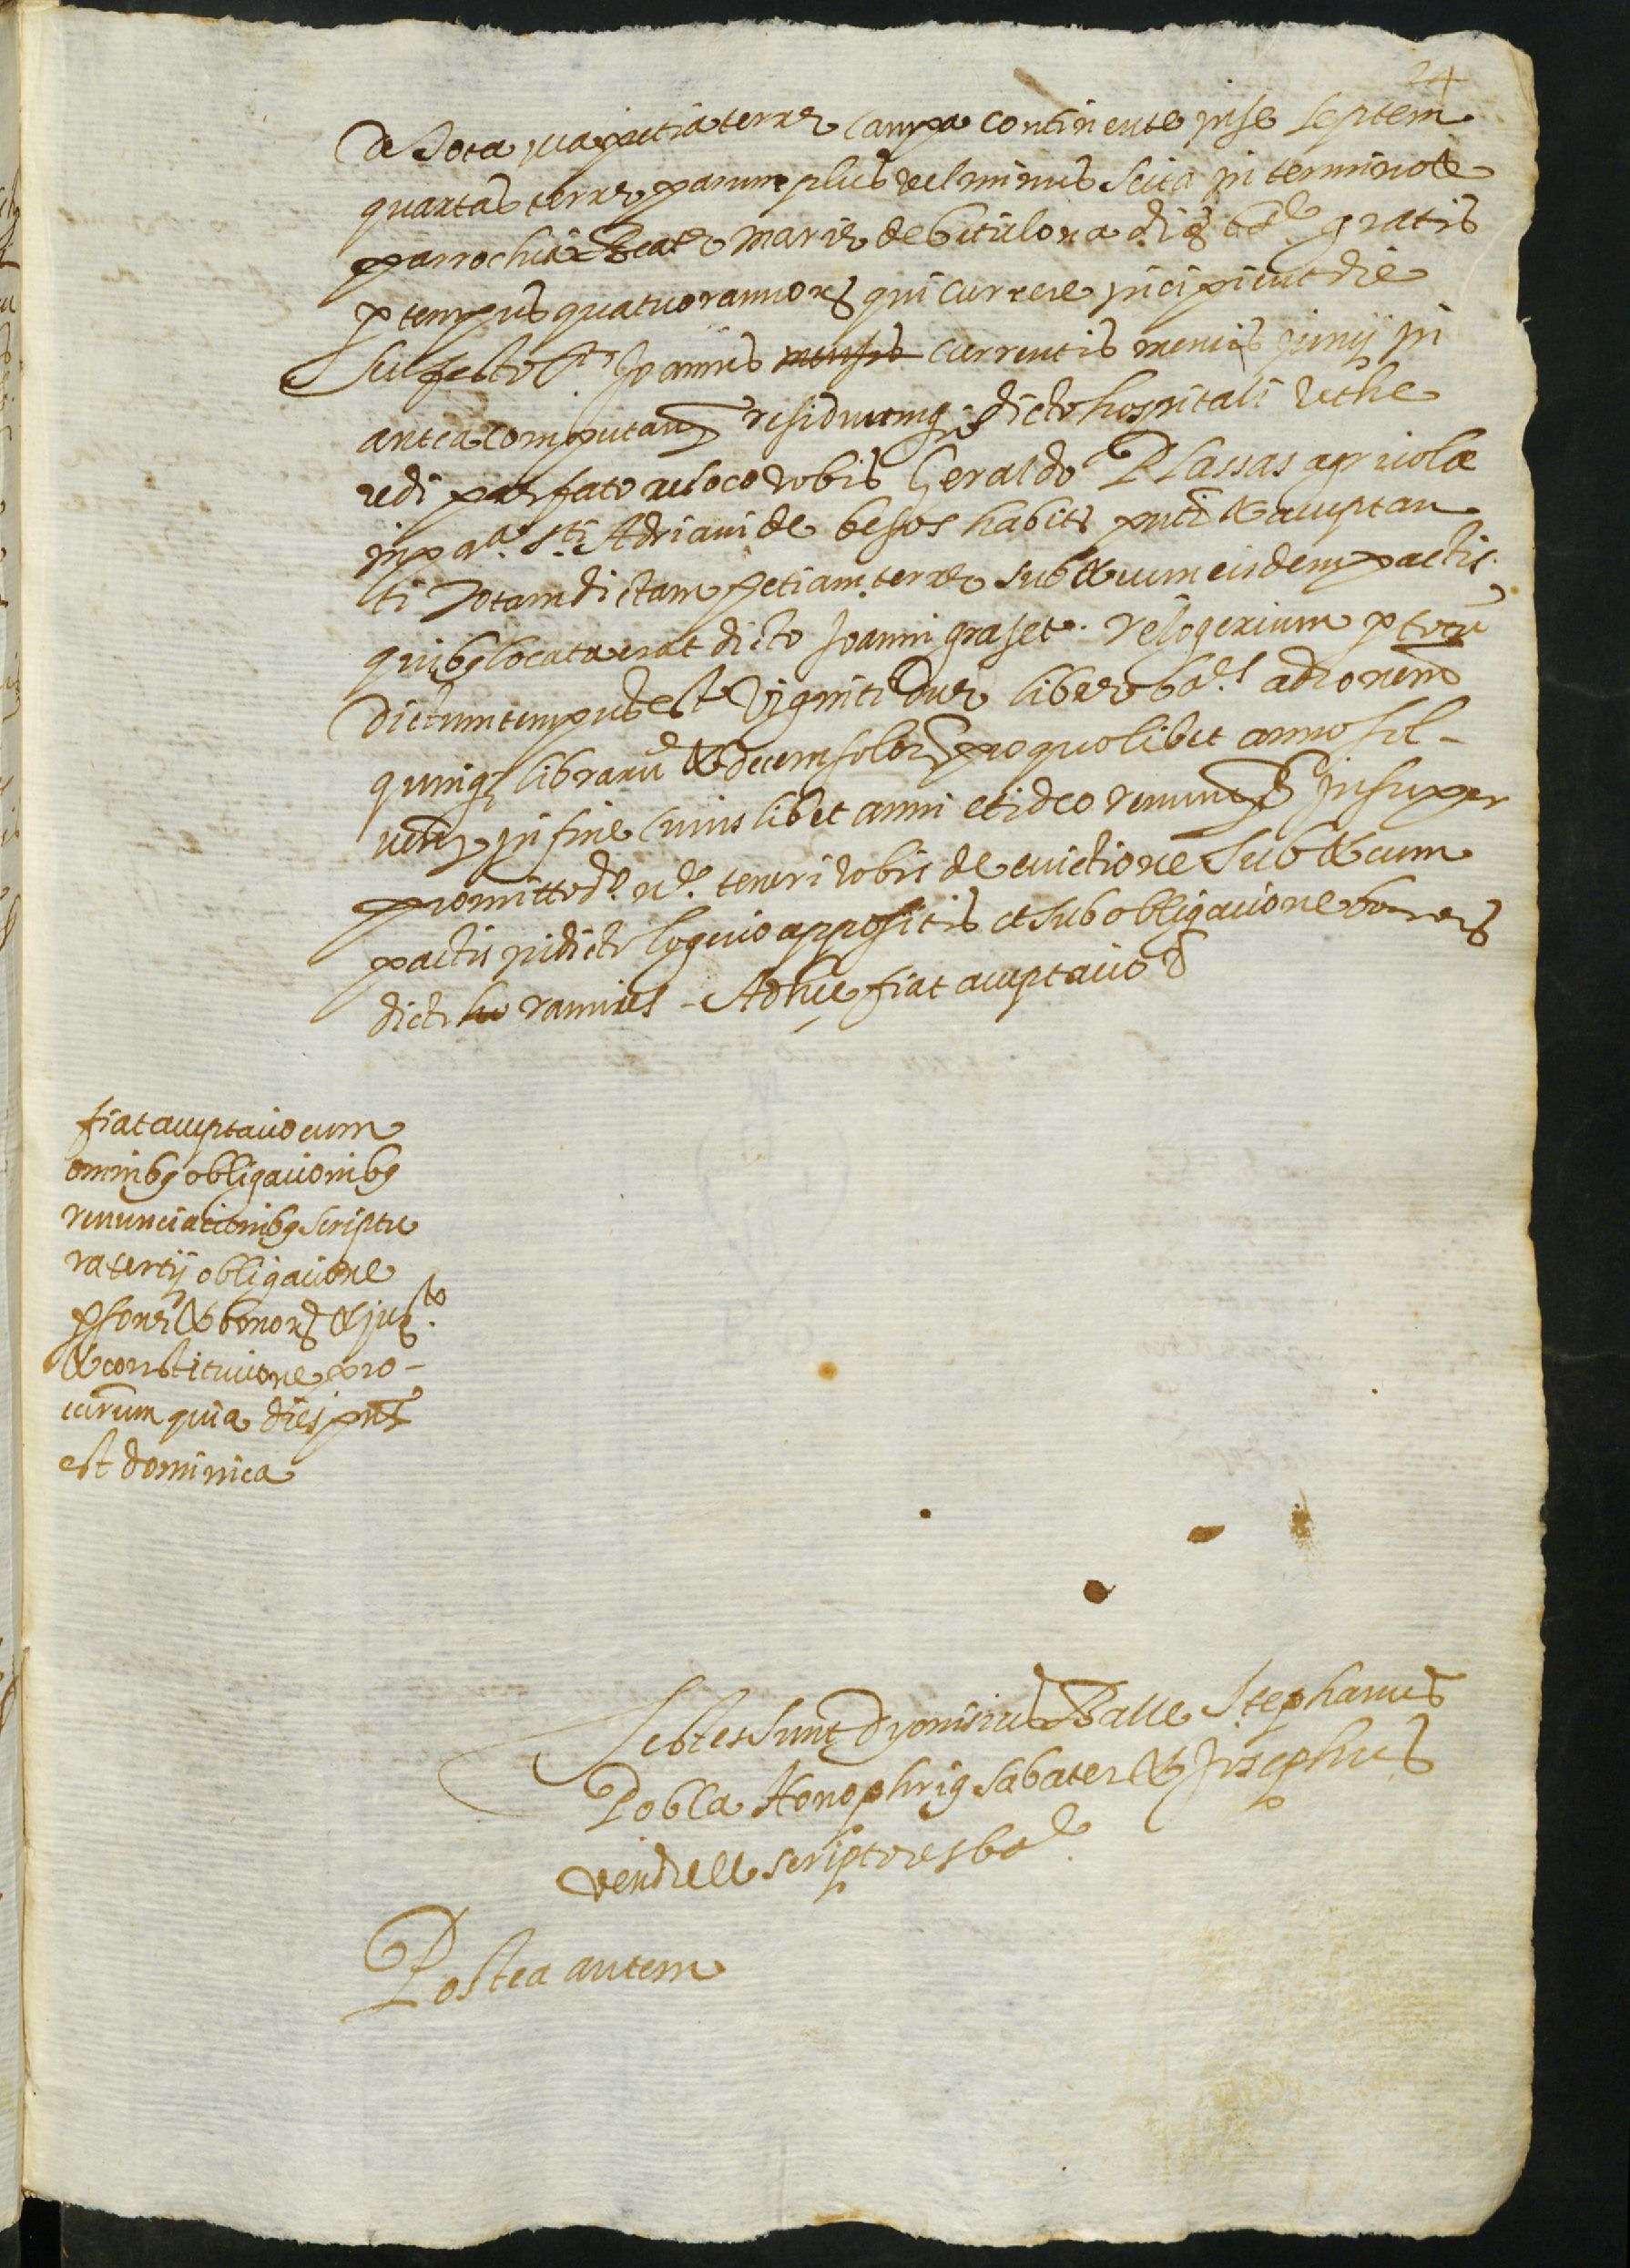 24
De Tota illa petia terre campa continente in se septem
quartas terre parum plus vel minus scita in termino et
parrochia Beate Marie de bitulona dis. bar.e gratis
p tempus quatuor annorum qui currere incipient die
sui festo s.ti Joannis mensis currentis mensis junij in
antea computand residuumq; dicto hospitali ut he
redi prefato ac loco vobis Geraldo Plassas agricole
in par.a s.ti Adriani de besos habits pnti & acceptan
ti Totam dictam petiam terre sub & cum eisdem pactis
quibus locata erat dicto Joanni graset. Preloqerium p totu
dictum tempus est viginti due libre bar.s ad ronem
quinq; libraru & decem solor pro quolibet anno sol-
vend in fine cuius libet anni et ideo renunc & Insuper
promitto d.o n.e teneri vobis de evictione sub & cum
pactis in dicto logerio appositis et sub obligacione bonors
dicti ho ramires - Ad hec fiat acceptacio &
fiat acceptacio cum
omnibus obligacionibus
renunciationibus scriptu
ra tertij obligacione
psone & bonors & jur.to
& constitucione pro-
curum quia dies pns
est dominica
Testes sunt Dyonisius Batlle Stephanus
Pobla Honophrius Sabater & Josephus
vendrell scriptores bar.e
Postea autem